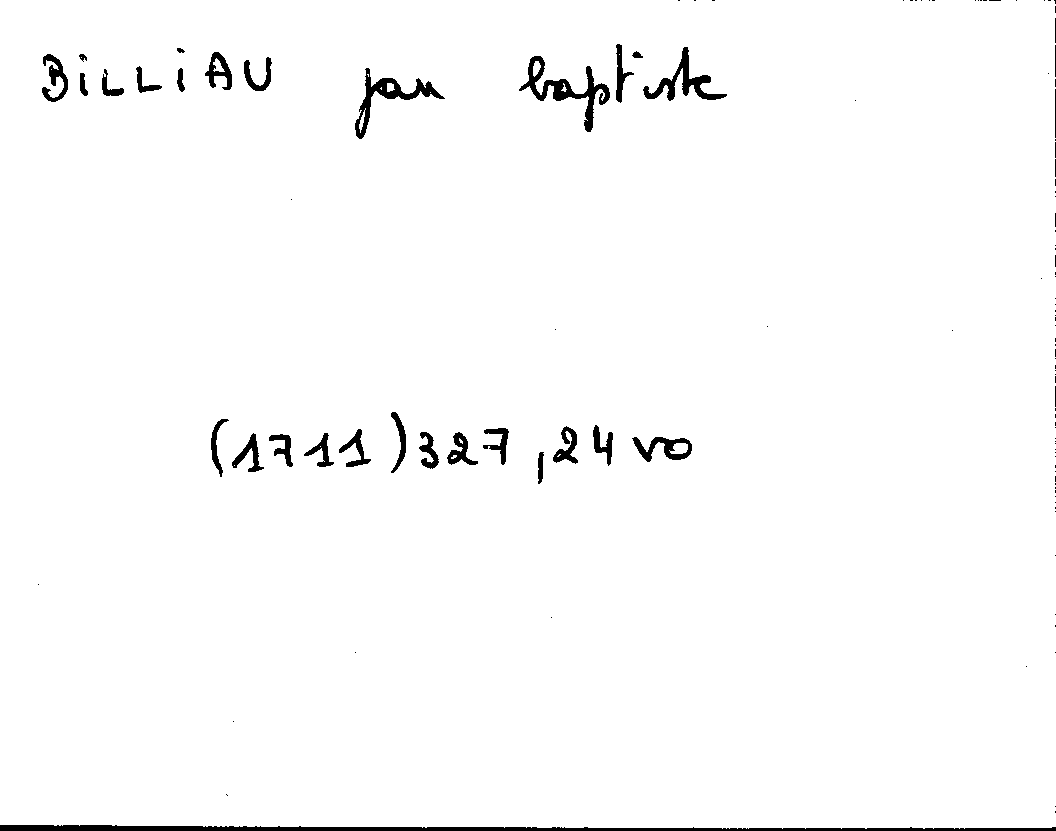 BiLLiAU jan baptiste
(1711)327,24vo